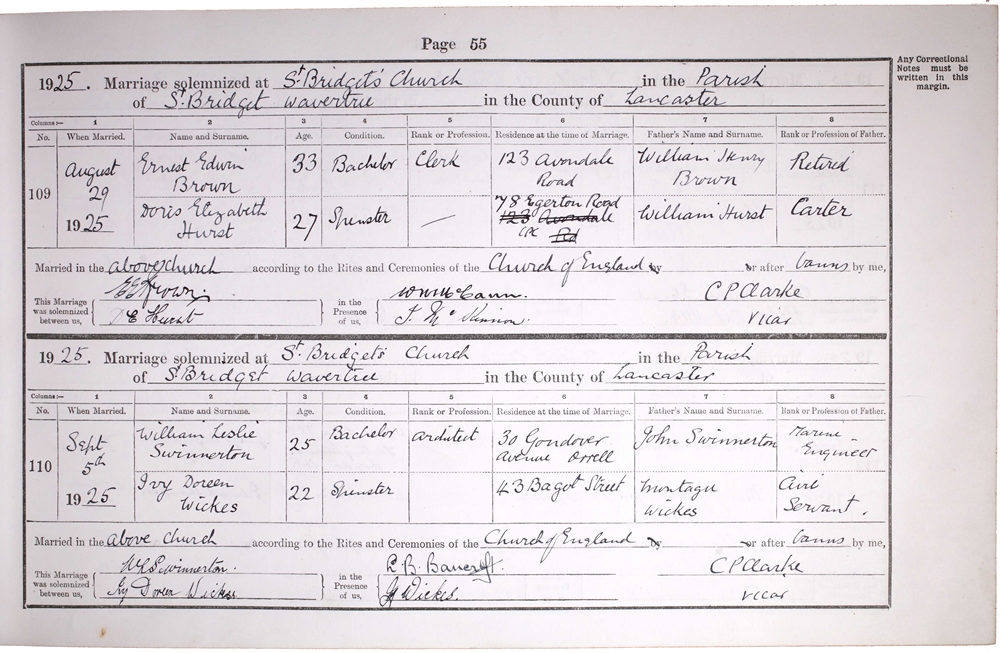 Page 55
Any Correctional
Notes must be
written in this
margin.
1925. Marriage solemnized at St Bridget's Church in the Parish
of St Bridget Wavertree in the County of Lancaster
Columns:— 1 2 3 4 5 6 7 8
No. When Married. Name and Surname. Age. Condition. Rank or Profession. Residence at the time of Marriage. Father's Name and Surname. Rank or Profession of Father.
109 August 29 1925
Ernest Edwin Brown 33 Bachelor Clerk 123 Avondale Road William Henry Brown Retired
Doris Elizabeth Hurst 27 Spinster — 78 Egerton Road 123 Avondale Rd CPC William Hurst Carter
Married in the above church according to the Rites and Ceremonies of the Church of England by or after banns by me,
This Marriage was solemnized between us,
E E Brown.
D E Hurst
in the Presence of us,
C P Clarke
Vicar
1925. Marriage solemnized at St Bridget's Church in the Parish
of St Bridget Wavertree in the County of Lancaster
Columns:— 1 2 3 4 5 6 7 8
No. When Married. Name and Surname. Age. Condition. Rank or Profession. Residence at the time of Marriage. Father's Name and Surname. Rank or Profession of Father.
110 Sept 5th 1925
William Leslie Swinnerton 25 Bachelor architect 30 Gondover Avenue Orrell John Swinnerton Marine Engineer
Ivy Doreen Wickes 22 Spinster 43 Bagot Street Montagu Wickes Civil Servant.
Married in the above church according to the Rites and Ceremonies of the Church of England by or after banns by me,
This Marriage was solemnized between us,
W L Swinnerton.
Ivy Doreen Wickes
in the Presence of us,
R. B. Bancroft.
Wickes.
C P Clarke
Vicar